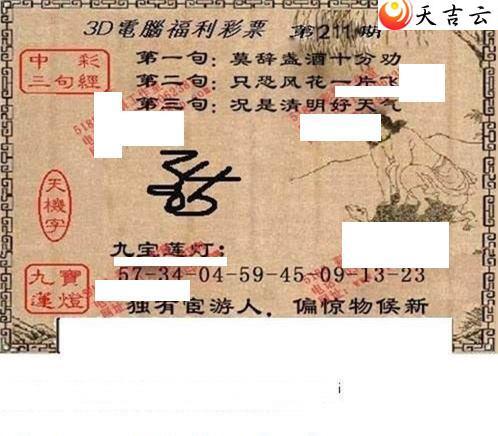 天吉云
3D電腦福利彩票 第211期
中彩
三句經
第一句:莫辞盏酒十分劝
第二句:只恐风花一片飞
第三句:况是清明好天气
天機字
九宝莲灯:
57-34-04-59-45-09-13-23
九寶
蓮燈
独有宦游人，偏惊物候新
i